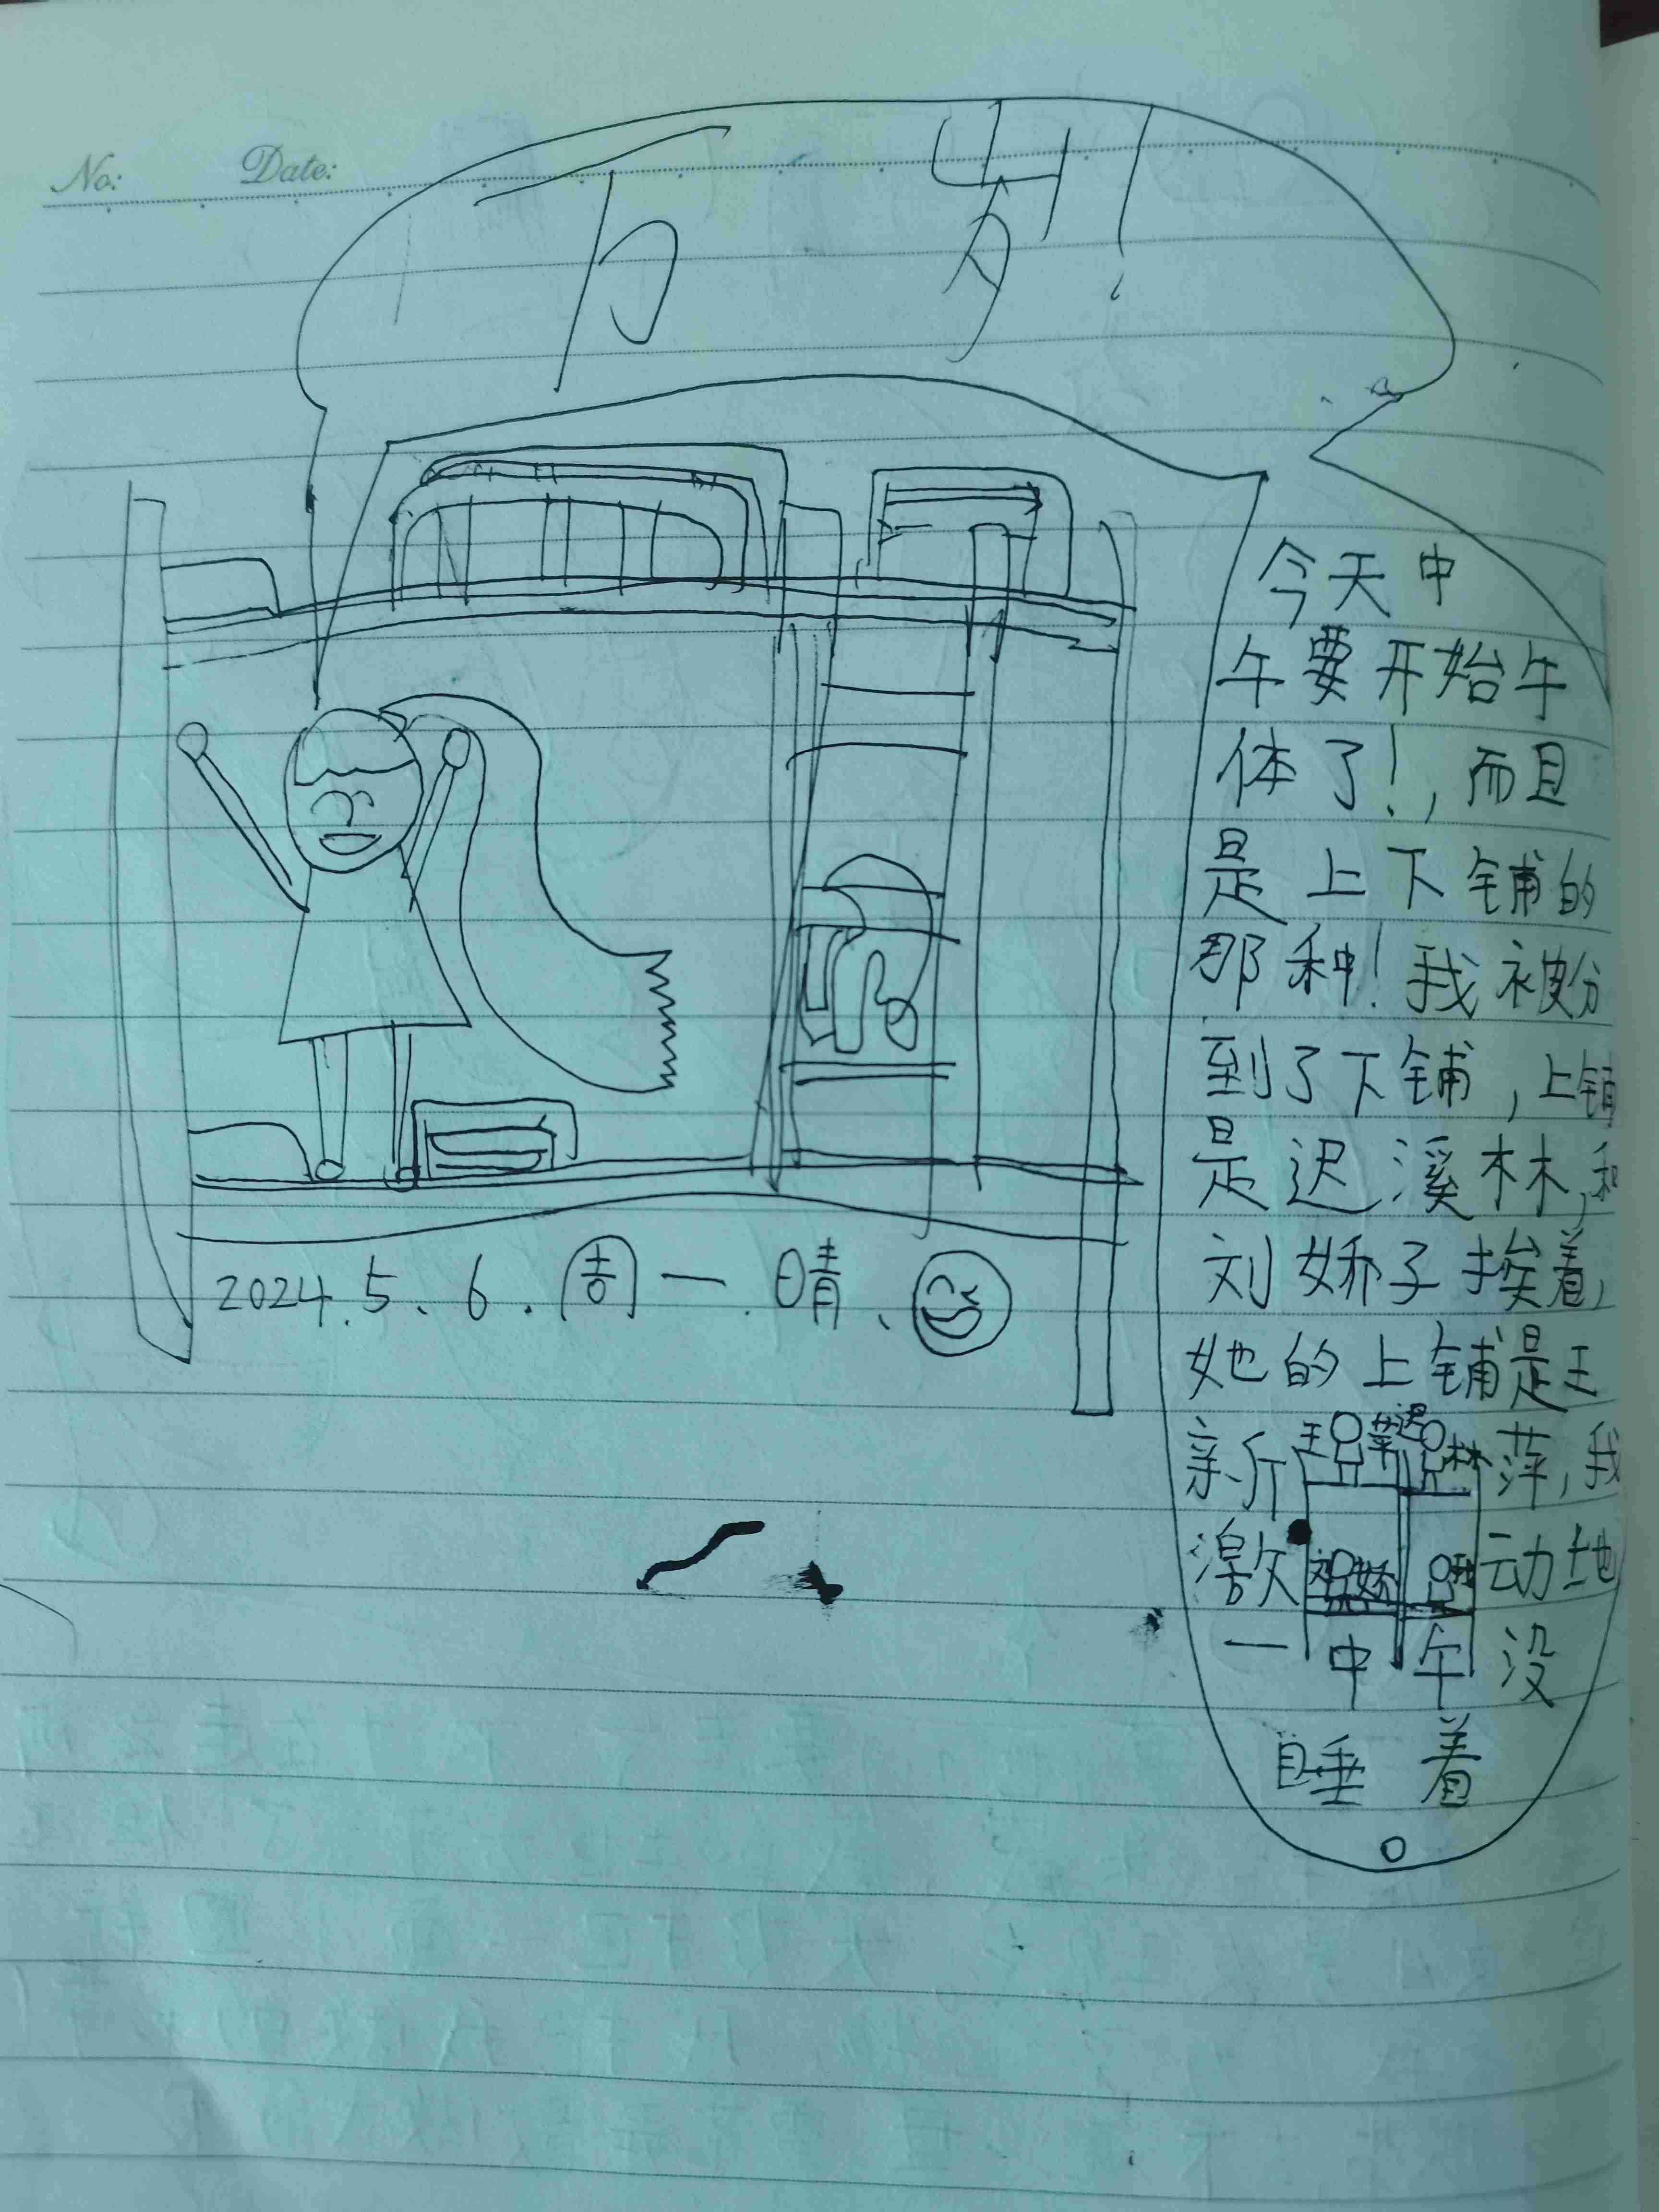 No: Date:
万岁!
今天中
午要开始午
体了!,而且
是上下铺的
那种!我被分
到了下铺,上铺
是迟溪林,和
刘娇子挨着,
她的上铺是王
新萍,我
激动地
一中午没
睡着
。
王 萍 迟 林
刘 娇 我
2024.5.6.周一.晴、